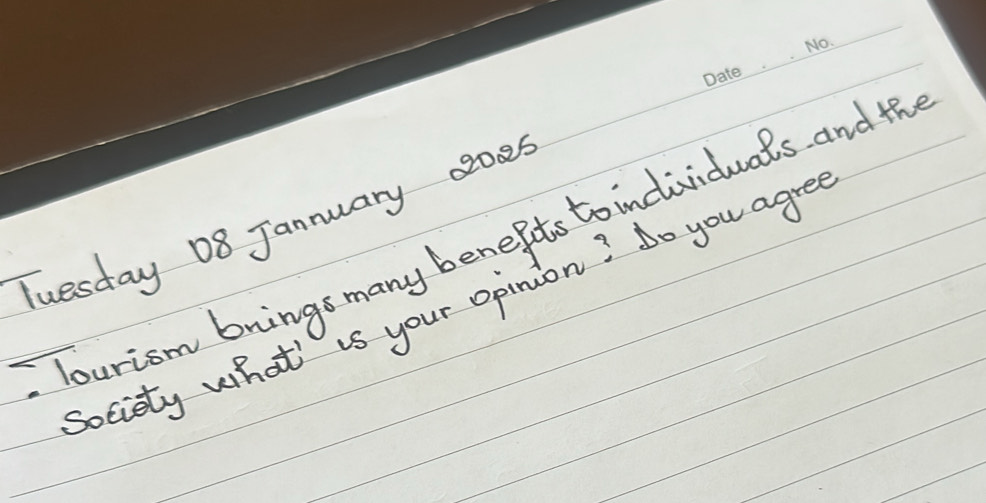 Date . . No.
Tuesday 08 Jannuary 2025
- Tourism brings many benefits to individuals and the
society what' is your opinion? Do you agree